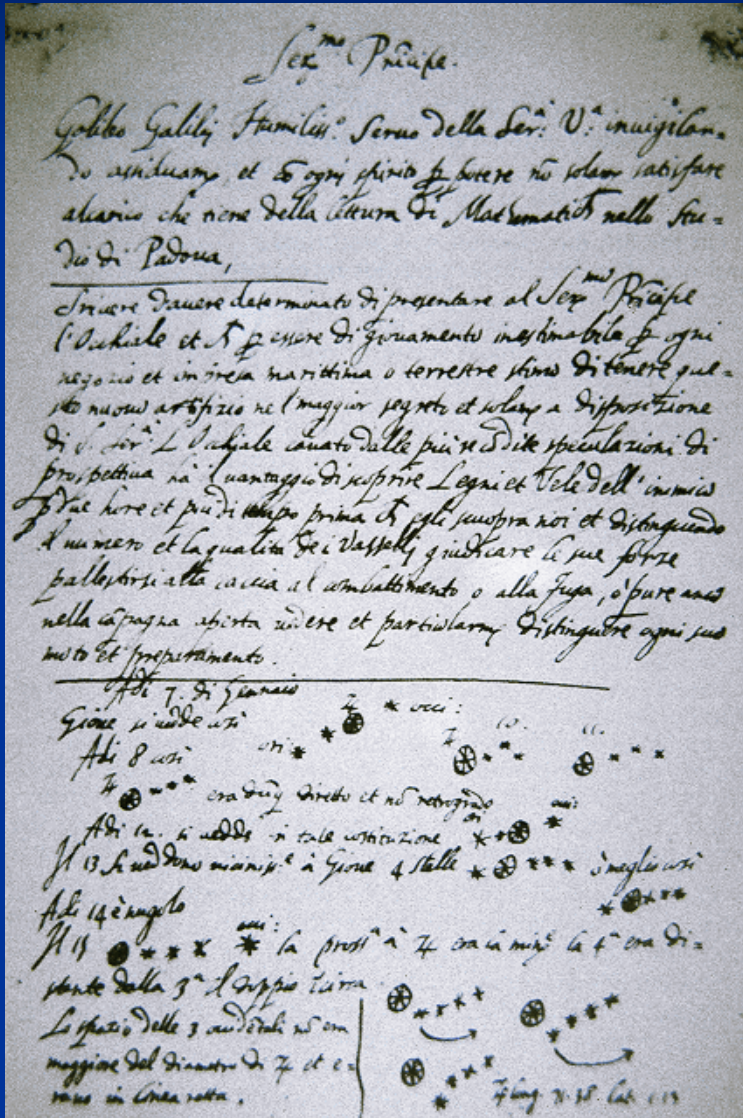 Ser^mo Prīcipe.
Galileo Galilej Humiliss.º Seruo della Ser.ª V.ª inuigilan-
do assiduam.^e et cō ogni spirito ꝑ potere nō solam.^e satisfare
alcarico che tiene della lettura di Mathematich nello Stu-
dio di Padoua,
Scriuere dauere determinato di presentare al Ser^mo Prīcipe
l'Occhiale et ꝑ essere di giouamento inestimabile ꝑ ogni
negozio et impresa marittima o terrestre stimo di tenere que-
sto nuouo artifizio nel maggior segreto et solam.^e a disposizione
di S. Ser.ª L'Occhiale cauato dalle più recōdite speculazioni di
prospettiua hà il vantaggio di scoprire Legni et Vele dell'inimico
ꝑ due hore et più di tempo prima ch egli scuopra noi et distinguendo
il numero et la qualità de i Vasselli giudicare le sue forze
pallestirsi alla caccia al combattimento o alla fuga, ò pure anco
nella cāpagna aperta uedere et particularm.^e distinguere ogni suo
moto et preparamento.
Adi 7. di Gennaio
Gioue si uedde così occi:
Adi 8 così ori: 10. 11.
♃ era dūq diretto et nō retrogrado
Adi 12. si uedde in tale costituzione ori occi:
Il 13 si ueddono uiciniss.^e à Gioue 4 stelle ò meglio così
Adi 14 è nugolo
Il 15 occi: la pross.ª à ♃ era la min.^e la 4ª era di-
stante dalla 3ª il doppio Circa
Lo spazio delle 3 occidētali nō era
maggiore del diametro di ♃ et e-
rano in linea retta.
♃ long. 71. 38. Lat. 1. 13